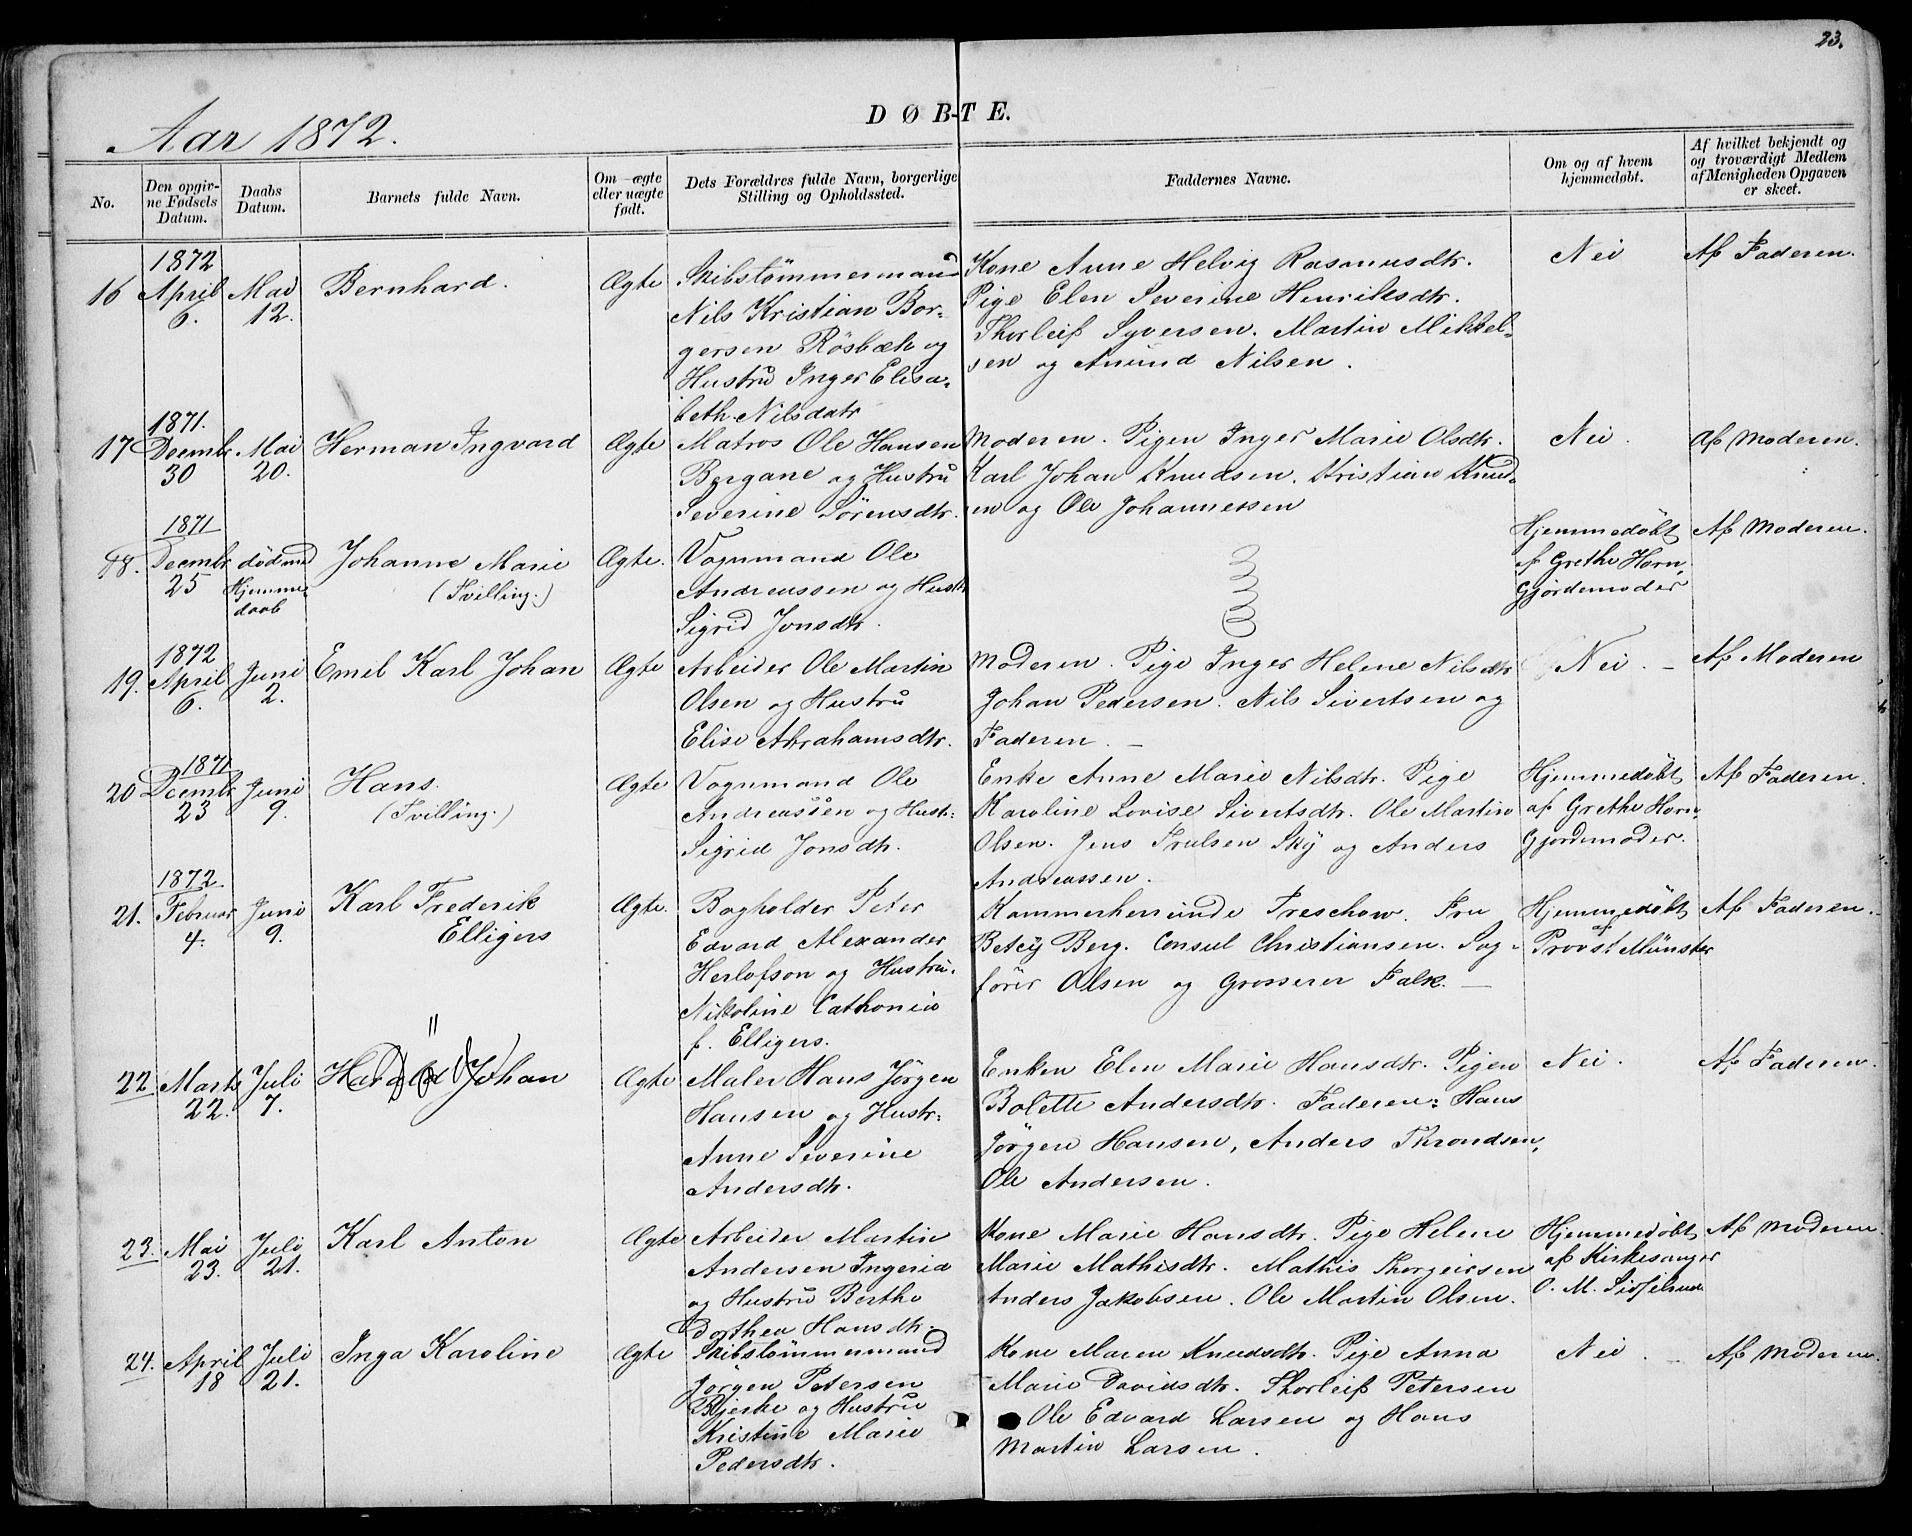 23.
DØBTE.
Aar 1872.
No.
Den opgivne Fødsels Datum.
Daabs Datum.
Barnets fulde Navn.
Om ægte eller uægte født.
Dets Forældres fulde Navn, borgerlige Stilling og Opholdssted.
Faddernes Navne.
Om og af hvem hjemmedøbt.
Af hvilket bekjendt og og troværdigt Medlem af Menigheden Opgaven er skeet.
16
1872
April
6.
Mai
12.
Bernhard.
Ægte
Skibstömmermand
Nils Kristian Bor-
gersen Rösbæk og
Hustru Inger Elisa-
beth Nilsdatr
Kone Anne Helvig Rasmusdtr.
Pige Elen Severine Henriksdtr.
Thorleif Syversen. Martin Mikkel-
sen og Amund Nilsen.
Nei
Af Faderen.
17
1871.
Decembr
30
Mai
20.
Herman Ingvard
Ægte
Matros Ole Hansen
Bergane og Hustru
Severine Sörensdtr.
Moderen. Pigen Inger Marie Olsdtr.
Karl Johan Knudsen. Kristian Knud-
sen og Ole Johannessen
Nei.
af Moderen.
18.
1871
Decembr
25
död med
Hjemme-
daab
Johanne Marie
(Tvilling.)
Ægte.
Vognmand Ole
Andreassen og Hustr
Sigrid Jonsdtr.
Hjemmedöbt
af Grethe Horn,
Gjördemoder
Af Moderen.
19.
1872
April
6.
Juni
2.
Emil Karl Johan
Ægte
Arbeider Ole Martin
Olsen og Hustru
Elise Abrahamsdtr.
Moderen. Pige Inger Helene Nilsdtr
Johan Pedersen. Nils Sivertsen og
Faderen. —
Nei. —
Af Moderen
20
1871
Decembr
23
Juni
9.
Hans.
(Tvilling.)
Ægte
Vognmand Ole
Andreassen og Hust:
Sigrid Jonsdtr.
Enke Anne Marie Nilsdtr. Pige
Karoline Lovise Sivertsdtr. Ole Martin
Olsen. Jens Trulsen Sky og Anders
Andreassen.
Hjemmedöbt
af Grethe Horn
Gjordemoder.
Af Faderen.
21.
1872
Februar
4.
Juni
9.
Karl Frederik
Elligers
Ægte.
Bogholder Peter
Edvard Alexander
Herlofson og Hustru.
Nikoline Cathonia
f. Elligers.
Kammerherreinde Treschow. Fru
Betcy Berg. Consul Christiansen. Sag-
förer Olsen og Grosserer Falk. —
Hjemmedöbt
af
Provst Münster
Af Faderen.
22
Marts
22.
Juli
7.
Harald Johan
Ægte
Maler Hans Jörgen
Hansen og Hustr:
Anne Severine
Andersdtr.
Enken Elen Marie Hansdtr. Pigen
Bolette Andersdtr. Faderen: Hans
Jörgen Hansen, Anders Throndsen,
Ole Andersen.
Nei.
Af Faderen.
23.
Mai
23.
Juli
21.
Karl Anton
Ægte
Arbeider Martin
Andersen Ingerid
og Hustru Berthe
Dorthea Hansdtr.
Kone Marie Hansdtr. Pige Helene
Marie Mathisdtr. Mathis Thorgeirsen
Anders Jakobsen. Ole Martin Olsen.
Hjemmedöbt
af Kirkesanger
O. M.
Af Moderen.
24.
April
18
Juli
21.
Inga Karoline
Ægte
Skibstömmermand
Jörgen Petersen
Bjerke og Hustru
Kristine Marie
Pedersdtr.
Kone Maren Knudsdtr. Pige Anna
Marie Davidsdtr. Thorleif Petersen
Ole Edvard Larsen og Hans
Martin Larsen.
Nei.
Af Moderen.